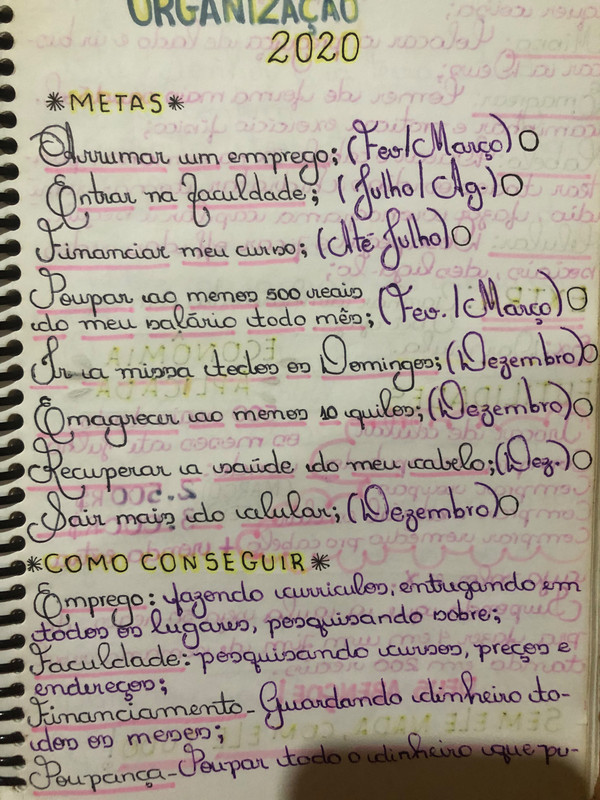 ORGANIZAÇÃO
2020
*METAS*
Arrumar um emprego; (Fev/Março) O
Entrar na faculdade; (Julho/Ag.) O
Financiar meu curso; (Até Julho) O
Poupar ao menos 500 reais
do meu salário todo mês; (Fev./Março) O
Ir a missa todos os Domingos; (Dezembro) O
Emagrecer ao menos 10 quilos; (Dezembro) O
Recuperar a saúde do meu cabelo; (Dez.) O
Sair mais do celular; (Dezembro) O
*COMO CONSEGUIR*
Emprego: fazendo curriculos, entregando em
todos os lugares, pesquisando sobre;
Faculdade: pesquisando cursos, preços e
endereços;
Financiamento - Guardando dinheiro to-
dos os meses;
Poupança - Poupar todo o dinheiro que pu-